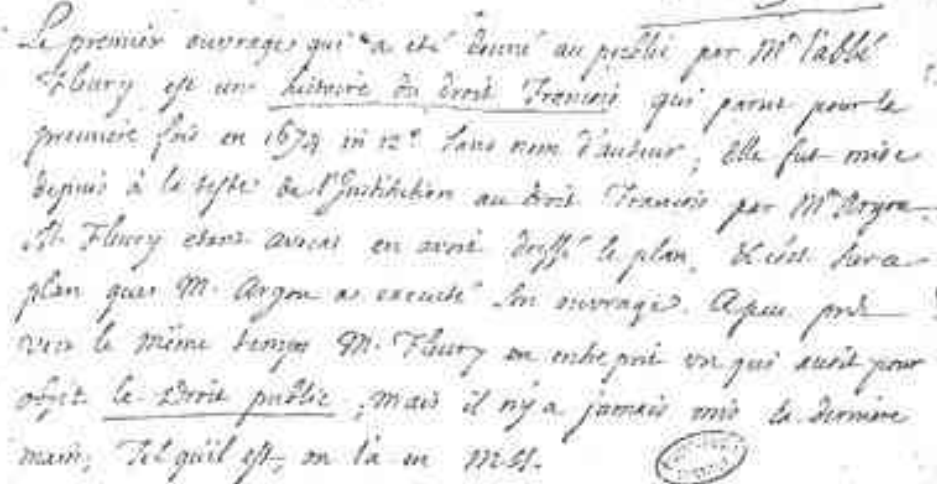 Le premier ouvrage qui a eté donné au public par Mr l'abbé
Fleury est une histoire du droit François qui parut pour la
premiere fois en 1674 in 12° sans nom d'auteur; Elle fut mise
depuis à la teste de l'Institution au droit François par Mr Argou.
M. Fleury etant avocat en avoit dressé le plan, & c'est sur ce
plan que M. Argou a executé son ouvrage. A peu prés
vers le même temps M. Fleury en entreprit un qui avoit pour
objet le Droit public, mais il n'y a jamais mis la derniere
main; Tel qu'il est, on l'a en MSS.